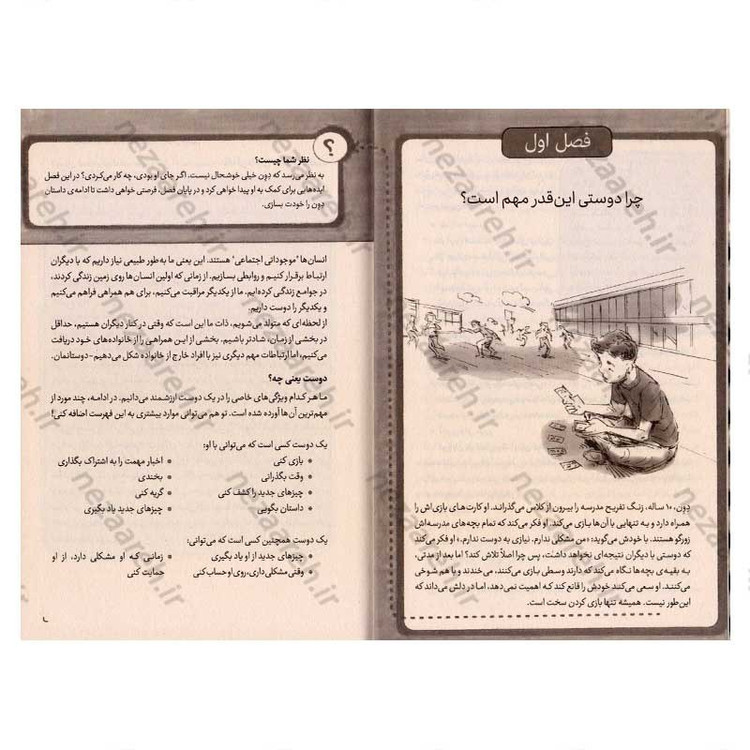 فصل اول
چرا دوستی این‌قدر مهم است؟
دِوِن، ۱۰ ساله، زنگ تفریح مدرسه را بیرون از کلاس می‌گذراند. او کارت‌های بازی‌اش را
همراه دارد و به تنهایی با آن‌ها بازی می‌کند. او فکر می‌کند که تمام بچه‌های مدرسه‌اش
زورگو هستند. با خودش می‌گوید: «من مشکلی ندارم. نیازی به دوست ندارم.» او فکر می‌کند
که دوستی با دیگران نتیجه‌ای نخواهد داشت، پس چرا اصلاً تلاش کند؟ اما بعد از مدتی،
به بقیه‌ی بچه‌ها نگاه می‌کند که دارند وسطی بازی می‌کنند، می‌خندند و با هم شوخی
می‌کنند. او سعی می‌کند خودش را قانع کند که اهمیت نمی‌دهد، اما در دلش می‌داند که
این‌طور نیست. همیشه تنها بازی کردن سخت است.
؟
نظر شما چیست؟
به نظر می‌رسد که دِوِن خیلی خوشحال نیست. اگر جای او بودی، چه کار می‌کردی؟ در این فصل
ایده‌هایی برای کمک به او پیدا خواهی کرد و در پایان فصل، فرصتی خواهی داشت تا ادامه‌ی داستان
دِوِن را خودت بسازی.
انسان‌ها "موجوداتی اجتماعی" هستند. این یعنی ما به‌طور طبیعی نیاز داریم که با دیگران
ارتباط برقرار کنیم و روابطی بسازیم. از زمانی که اولین انسان‌ها روی زمین زندگی کردند،
در جوامع زندگی کرده‌ایم. ما از یکدیگر مراقبت می‌کنیم، برای هم همراهی فراهم می‌کنیم
و یکدیگر را دوست داریم.
از لحظه‌ای که متولد می‌شویم، ذات ما این است که وقتی در کنار دیگران هستیم، حداقل
در بخشی از زمان، شادتر باشیم. بخشی از این همراهی را از خانواده‌های خود دریافت
می‌کنیم، اما ارتباطات مهم دیگری نیز با افراد خارج از خانواده شکل می‌دهیم - دوستانمان.
دوست یعنی چه؟
ما هر کدام ویژگی‌های خاصی را در یک دوست ارزشمند می‌دانیم. در ادامه، چند مورد از
مهم‌ترین آن‌ها آورده شده است. تو هم می‌توانی موارد بیشتری به این فهرست اضافه کنی!
یک دوست کسی است که می‌توانی با او:
• بازی کنی
• وقت بگذرانی
• چیزهای جدید را کشف کنی
• داستان بگویی
• اخبار مهمت را به اشتراک بگذاری
• بخندی
• گریه کنی
• چیزهای جدید یاد بگیری
یک دوست همچنین کسی است که می‌توانی:
• چیزهای جدید از او یاد بگیری
• وقتی مشکلی داری، روی او حساب کنی
• زمانی که او مشکلی دارد، از او
حمایت کنی
nezaareh.ir